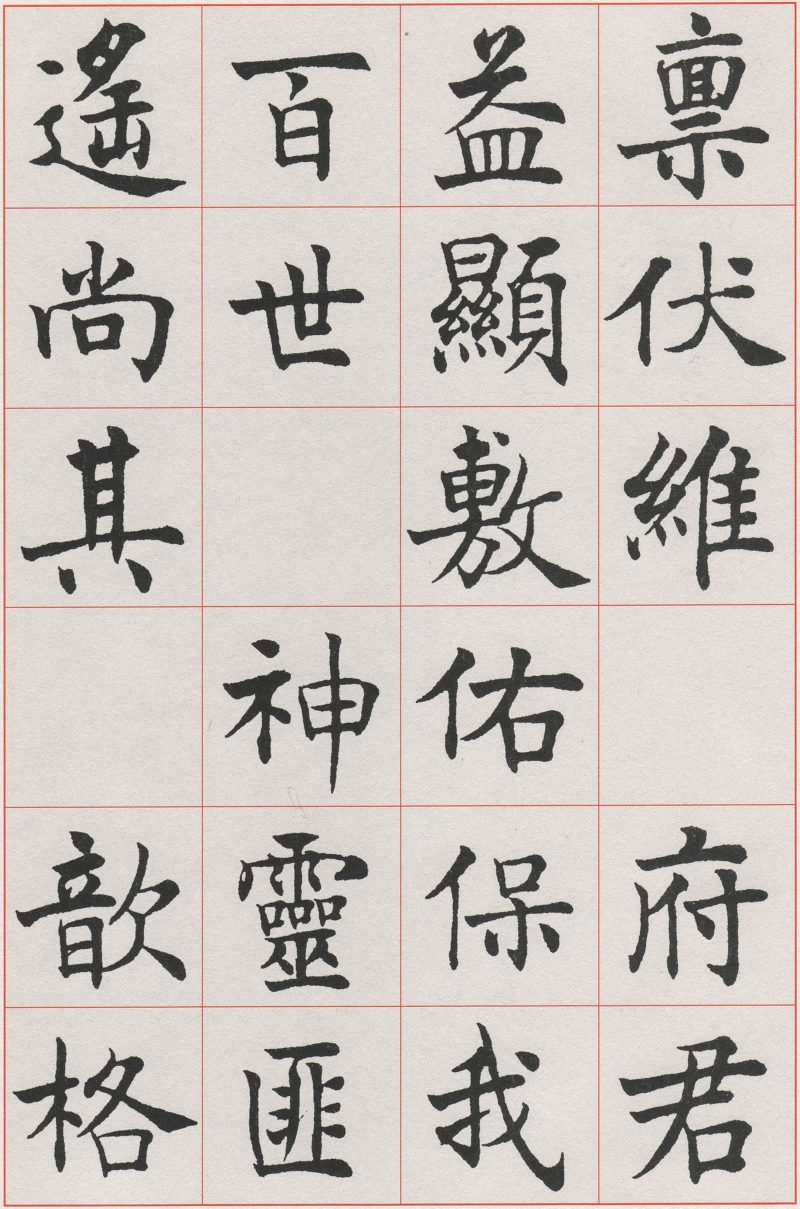 稟伏維府君
益顯敷佑保我
百世神靈匪
遙尚其歆格